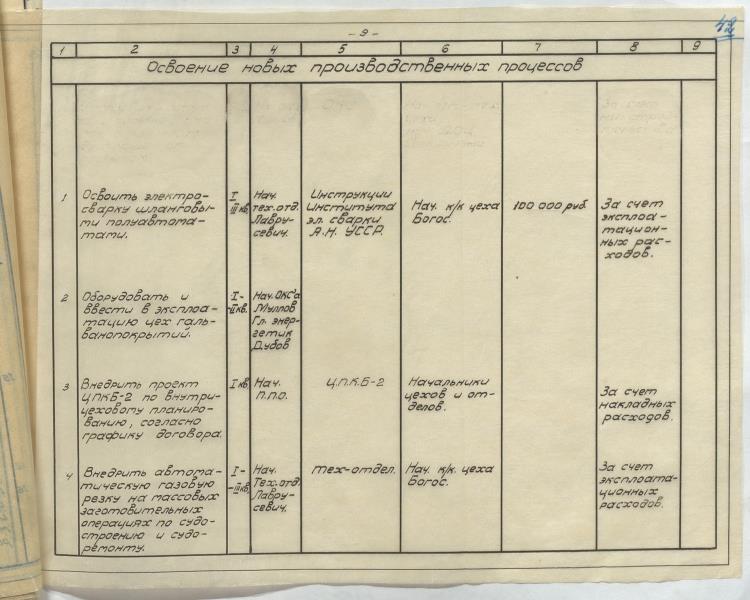 - 9 -
1 2 3 4 5 6 7 8 9
Освоение новых производственных процессов
1
Освоить электро-
сварку шланговы-
ми полуавтома-
тами.
I
III кв.
Нач.
тех.отд.
Лавру-
севич.
Инструкции
Института
эл. сварки
А.Н. УССР.
Нач. к/к цеха
Богос.
100 000 руб
За счет
эксплоа-
тацион-
ных рас-
ходов.
2
Оборудовать и
ввести в эксплоа-
тацию цех галь-
ванопокрытий.
I-
-II кв.
Нач. ОКС'а
Муллов
Гл. энер-
гетик
Дубов
3
Внедрить проект
ЦПКБ-2 по внутри-
цеховому планиро-
ванию, согласно
графику договора.
I кв.
Нач.
П.П.О.
Ц.П.К.Б-2
Начальники
цехов и от-
делов.
За счет
накладных
расходов.
4
Внедрить автома-
тическую газовую
резку на массовых
заготовительных
операциях по судо-
строению и судо-
ремонту.
I-
-III кв.
Нач.
Тех.отд.
Лавру-
севич.
тех-отдел.
Нач. к/к. цеха
Богос.
За счет
эксплоата-
ционных
расходов.